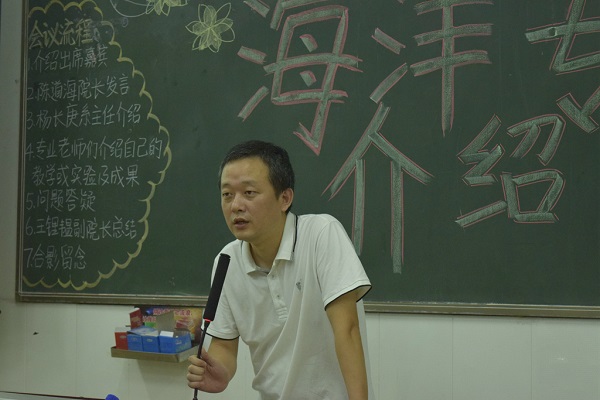 会议流程:
1.介绍出席嘉宾
2.陈道海院长发言
3.杨长庚系主任介绍
4.专业老师们介绍自己的
教学或实验及成果
5.问题答疑
6.王锂韫副院长总结
7.合影留念
海洋专
介绍